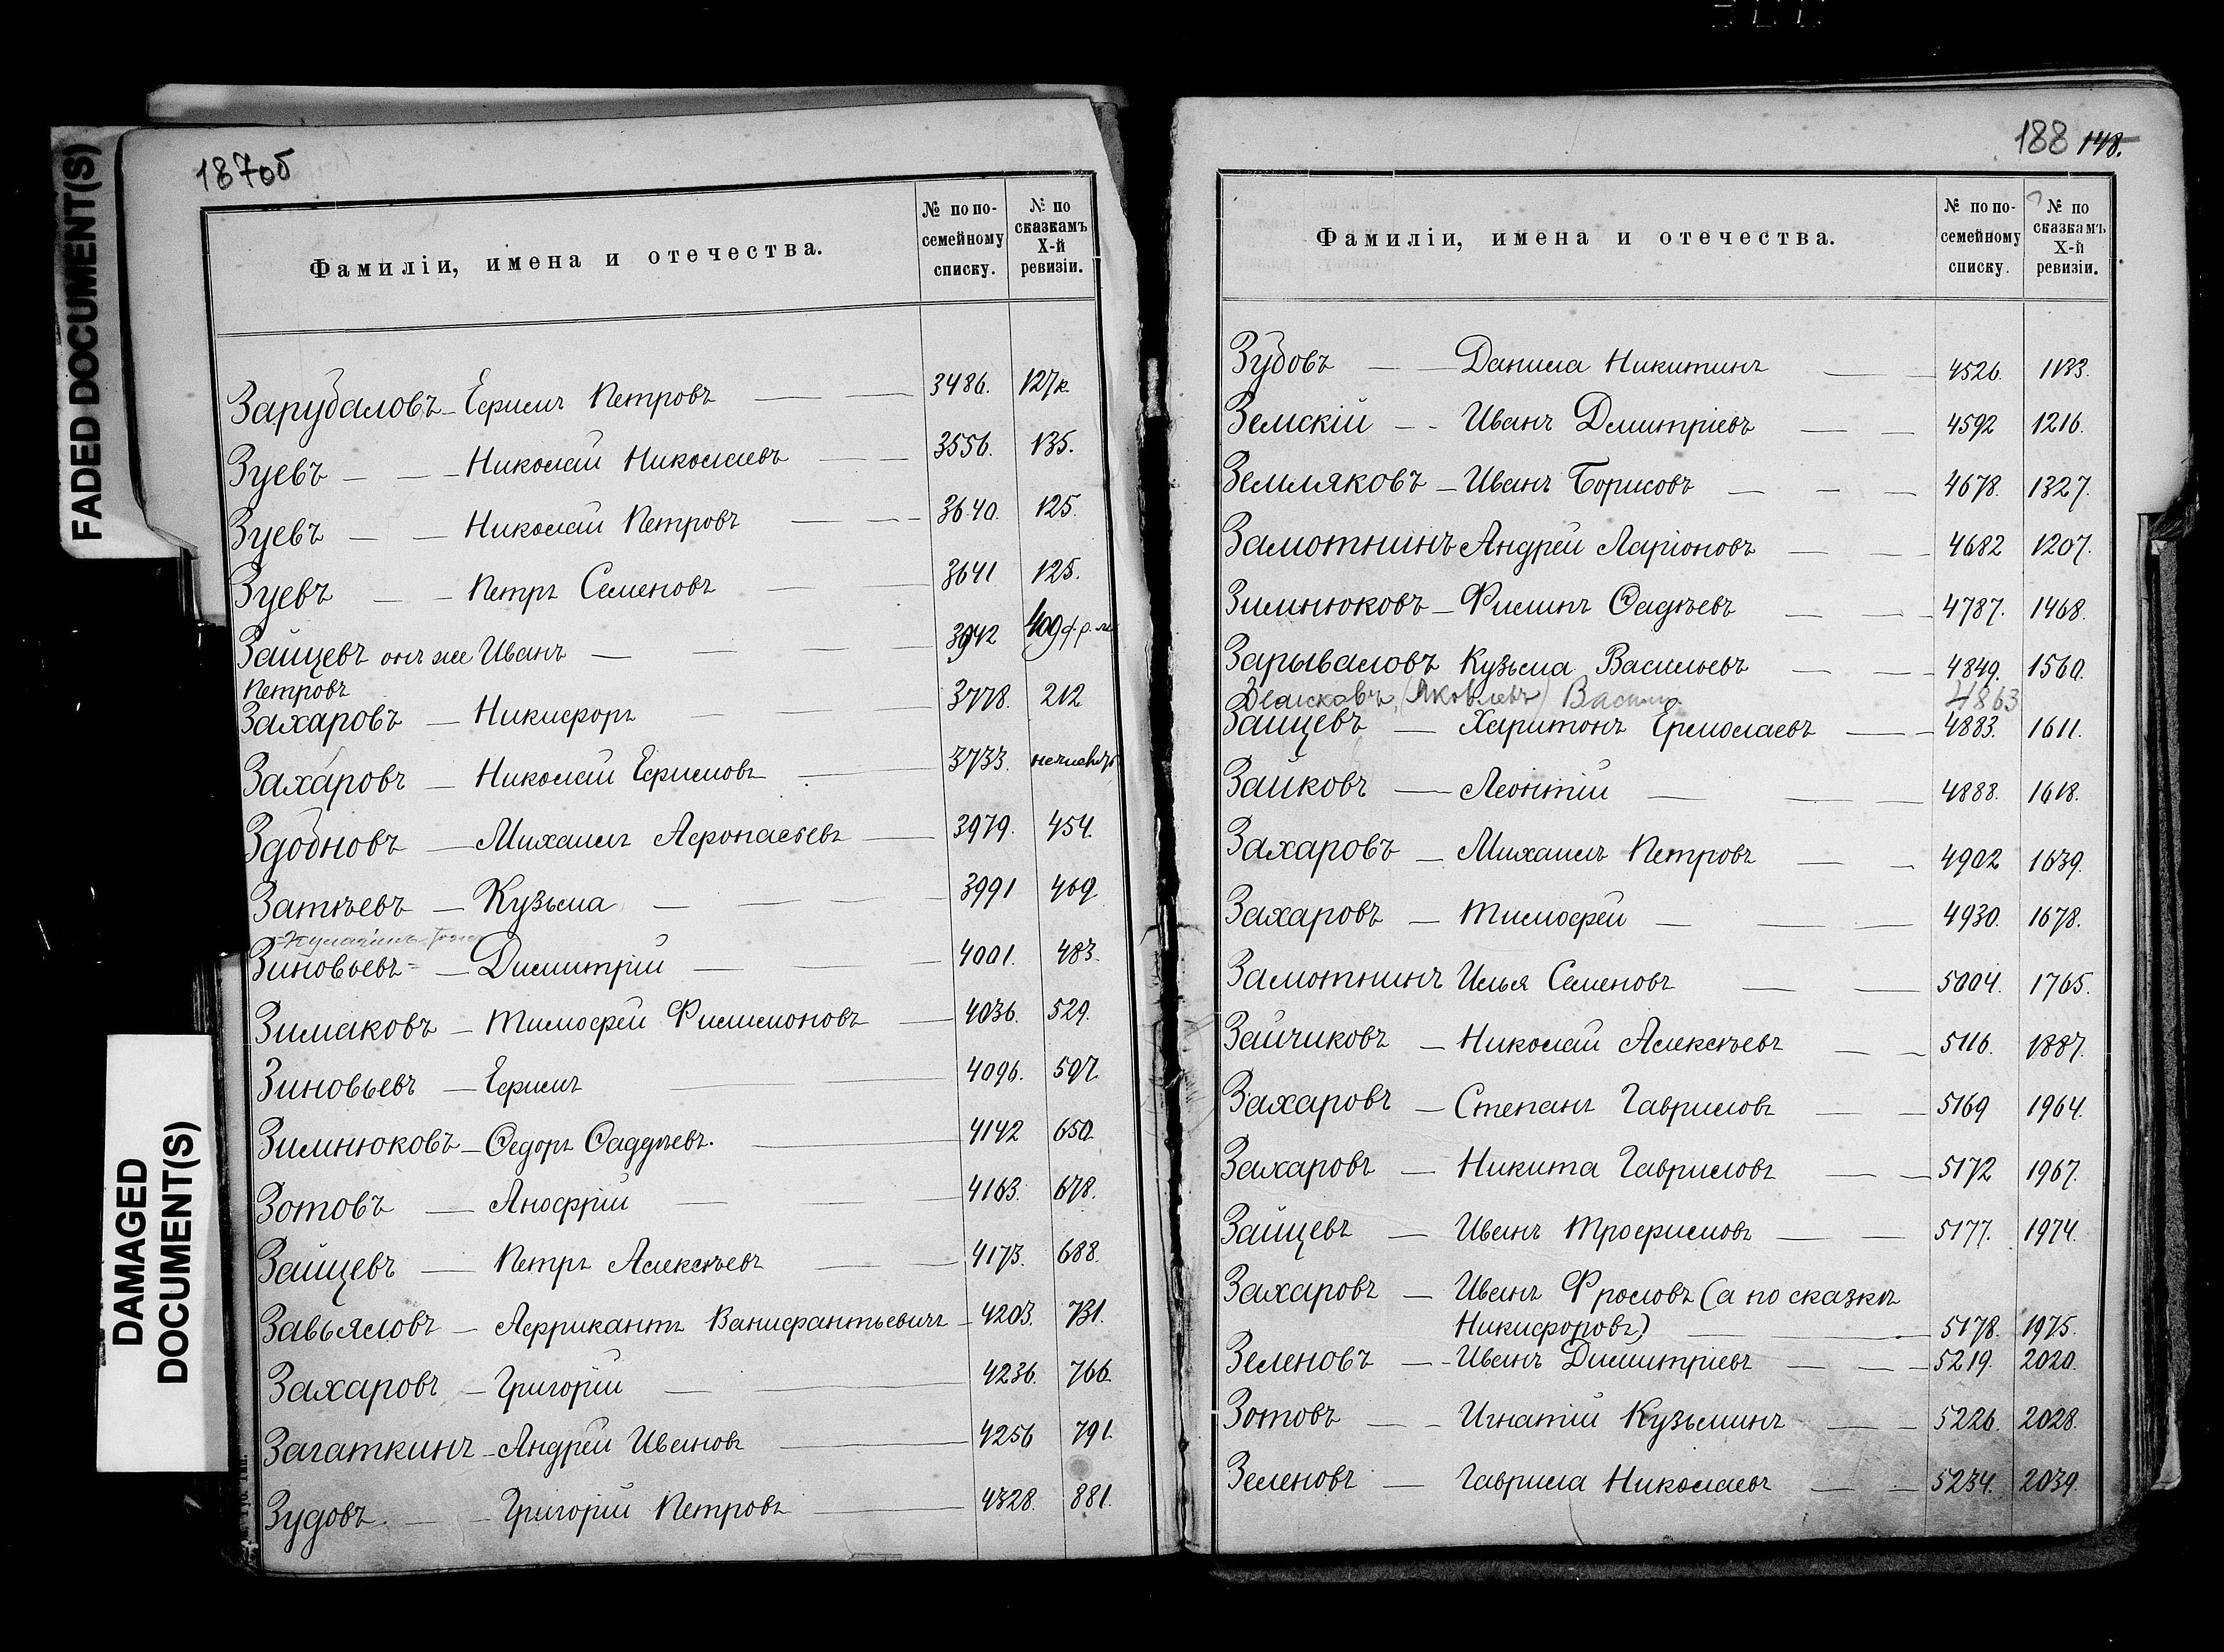 FADED DOCUMENT(S)
DAMAGED
DOCUMENT(S)
187об
Фамиліи, имена и отечества.
№ по по-
семейному
списку.
№ по
сказкамъ
X-й
ревизіи.
Зарубаловъ — Ефимъ Петровъ — — 3486. 127к.
Зуевъ — — Николай Николаевъ — — 3556. 135.
Зуевъ — — Николай Петровъ — — 3640. 125.
Зуевъ — — Петръ Семеновъ — — 3641 125.
Зайцевъ онъ же Иванъ — — — 3942 409
Петровъ
Захаровъ — Никифоръ — — 3778. 212
Захаровъ — Николай Ефимовъ — — 3733.
Здобновъ — Михаилъ Афонасьевъ — 3979. 454.
Затѣевъ — Кузьма — — — 3991 469
Зиновьевъ — Димитрій — — — 4001. 483.
Зимаковъ — Тимофей Филимоновъ — 4036. 529.
Зиновьевъ — Ефимъ — 4096. 597
Зимнюковъ — Ѳедоръ Ѳаддѣевъ. — 4142 650
Зотовъ — Анофрій — — — 4163. 678.
Зайцевъ — Петръ Алексѣевъ — — 4173. 688.
Завьяловъ — Африкантъ Ванифантьевичъ — 4203. 731.
Захаровъ — Григорій — — 4236. 766.
Загаткинъ — Андрей Ивановъ — 4256 791.
Зудовъ — — Григорій Петровъ — 4328. 881.
188 148.
Фамиліи, имена и отечества.
№ по по-
семейному
списку.
№ по
сказкамъ
X-й
ревизіи.
Зудовъ — — Данила Никитинъ — — 4526. 1133.
Земскій — - Иванъ Дмитріевъ — — 4592 1216.
Земляковъ — Иванъ Борисовъ — — — 4678. 1327.
Замотнинъ Андрей Ларіоновъ — — 4682 1207.
Зимнюковъ — Филипъ Ѳадѣевъ — — 4787. 1468.
Зарываловъ Кузьма Васильевъ — — 4849. 1560.
(Яковлевъ) 4863
Зайцевъ — Харитонъ Ермолаевъ — — 4883. 1611.
Зайковъ — Леонтій — — — 4888. 1618.
Захаровъ — Михаилъ Петровъ — — 4902 1639.
Захаровъ — Тимофей — — — 4930. 1678.
Замотнинъ Илья Семеновъ — — 5004. 1765.
Зайчиковъ — Николай Алексѣевъ — — 5116. 1887.
Захаровъ — Степанъ Гавриловъ — — 5169 1964.
Захаровъ — Никита Гавриловъ — — 5172 1967.
Зайцевъ — Иванъ Трофимовъ — — 5177. 1974.
Захаровъ — Иванъ Фроловъ (а по сказкѣ
Никифоровъ) — — 5178. 1975.
Зеленовъ — - Иванъ Димитріевъ — — — 5219. 2020.
Зотовъ — - Игнатій Кузьминъ — — 5226. 2028.
Зеленовъ — Гаврила Николаевъ — — 5234. 2039.